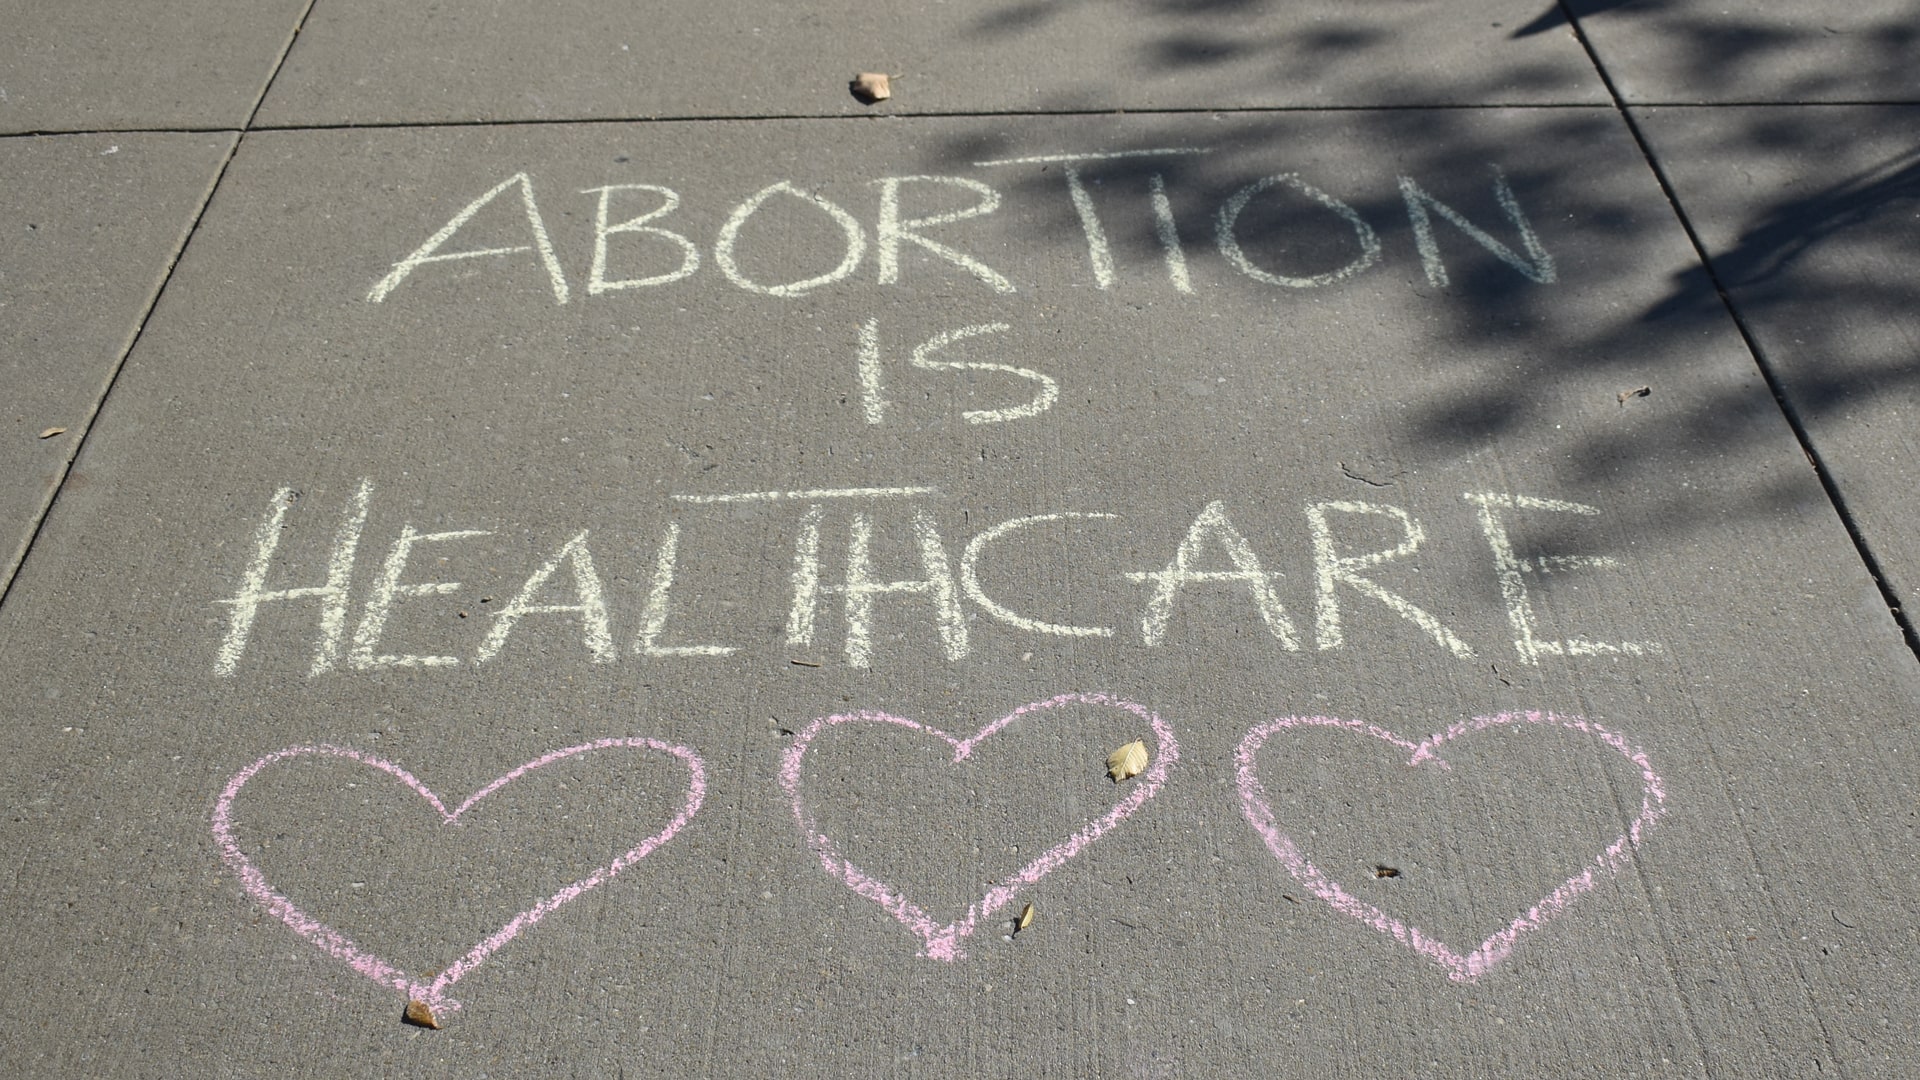 ABORTION
IS
HEALTHCARE